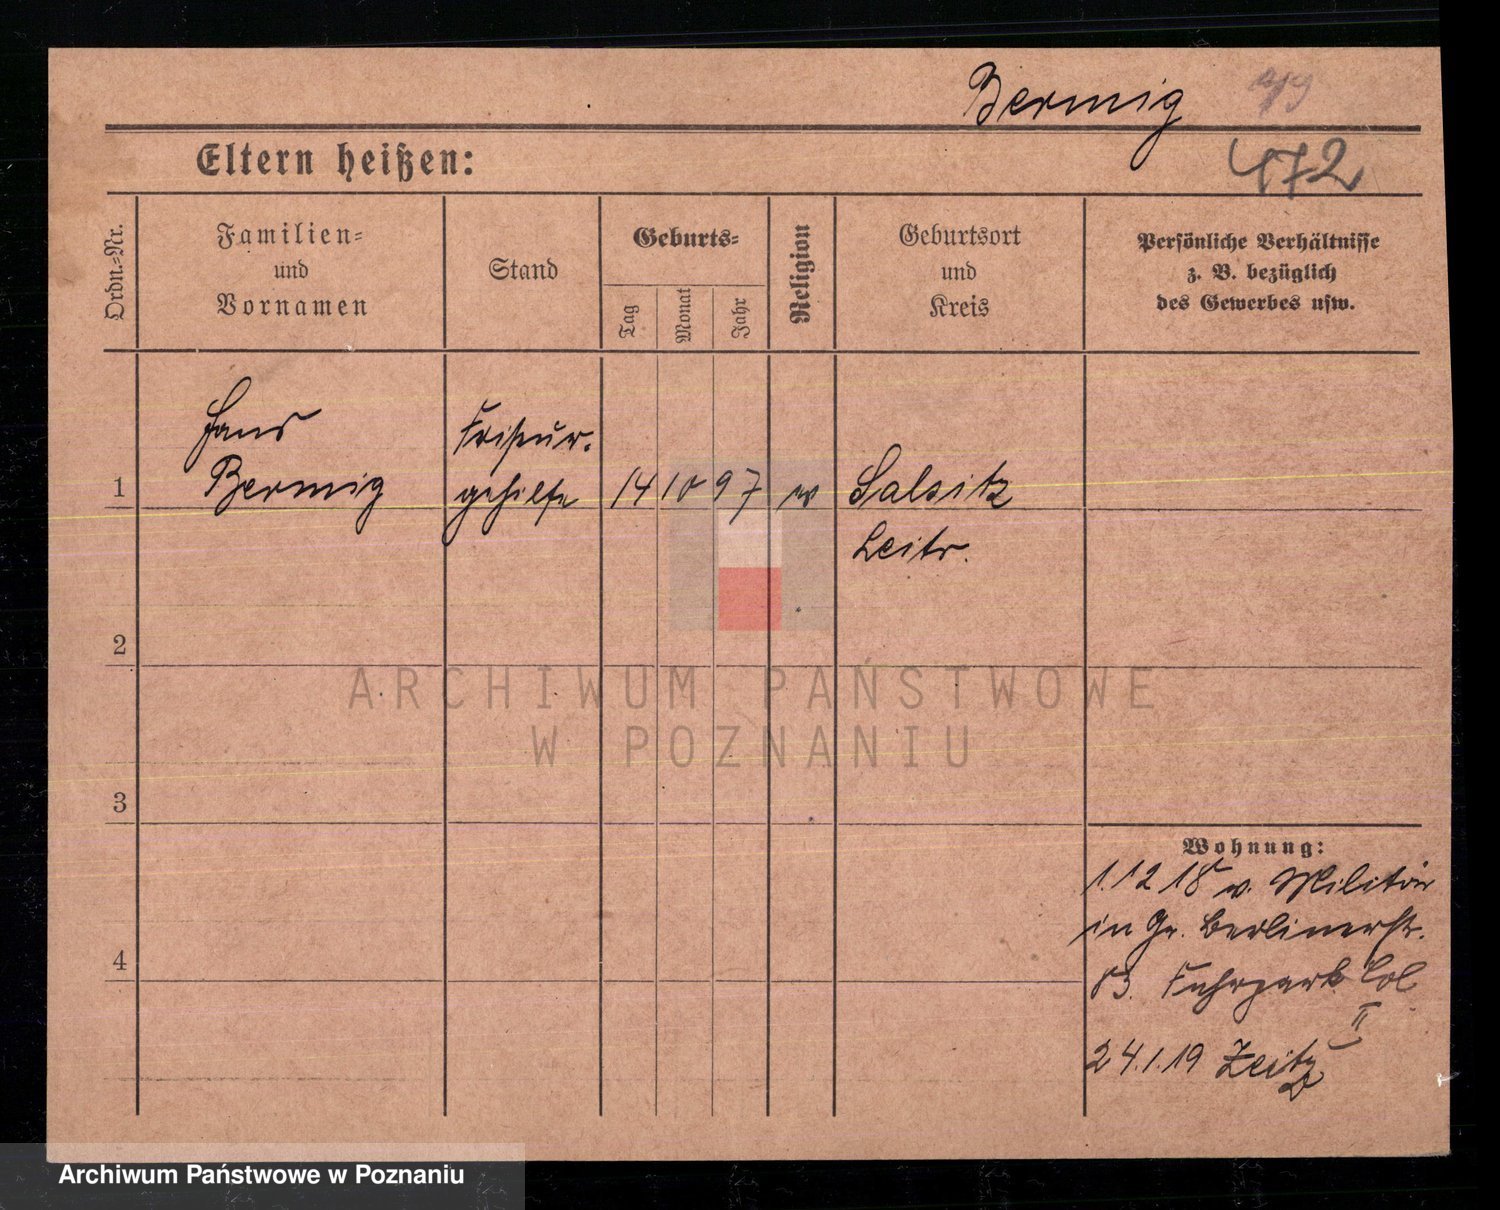 Bermig
472
Eltern heißen:
Ordn.-Nr.
Familien-
und
Vornamen
Stand
Geburts-
Tag
Monat
Jahr
Religion
Geburtsort
und
Kreis
Persönliche Verhältnisse
z. B. bezüglich
des Gewerbes usw.
Hans
Bermig
Friseur.
gehilfe
1
14
10
97
Salsitz
Zeitz.
2
3
4
Wohnung:
1.12 18 v. Militär
in Gr. Berlinerstr.
83. Fuhrpark Col
II
24.1.19 Zeitz
ARCHIWUM PAŃSTWOWE
W POZNANIU
Archiwum Państwowe w Poznaniu